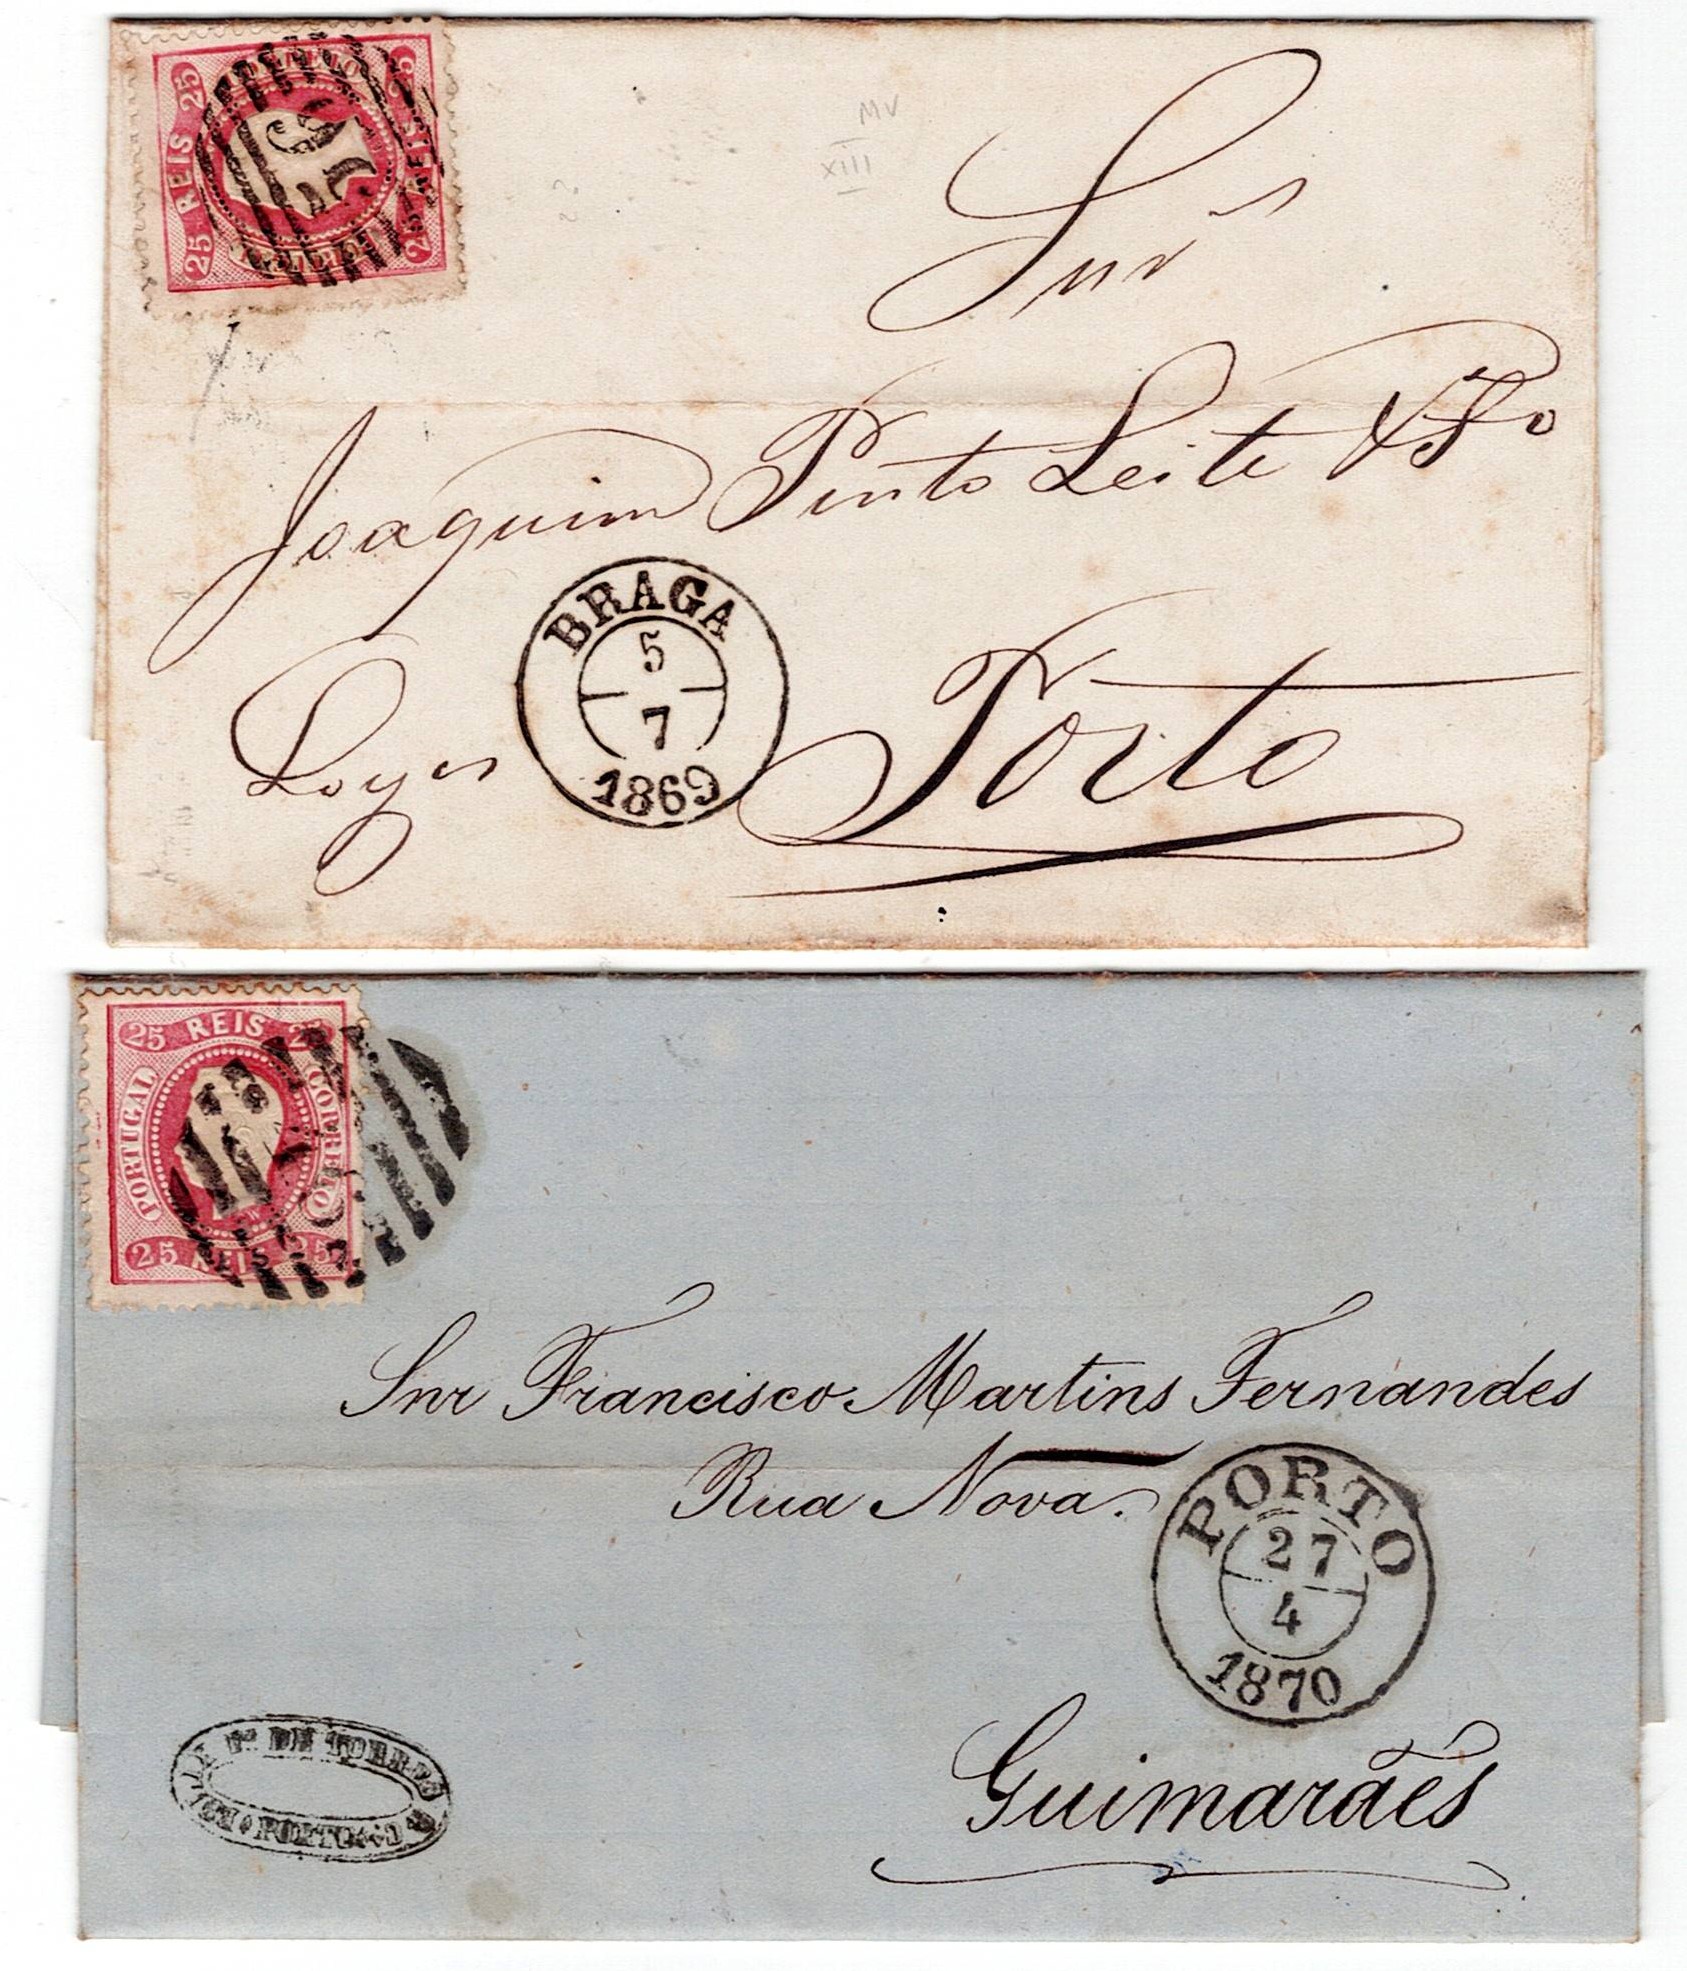 25 REIS 25
25 REIS 25
CORREIO
MV
XIII
Snr
Joaquim Pinto Leite & Fo
Loyos
Porto
BRAGA
5
7
1869
25 REIS 25
PORTUGAL
CORREIO
25 REIS 25
Snr Francisco Martins Fernandes
Rua Nova.
PORTO
27
4
1870
Guimarães
DE TORRES
PORTO